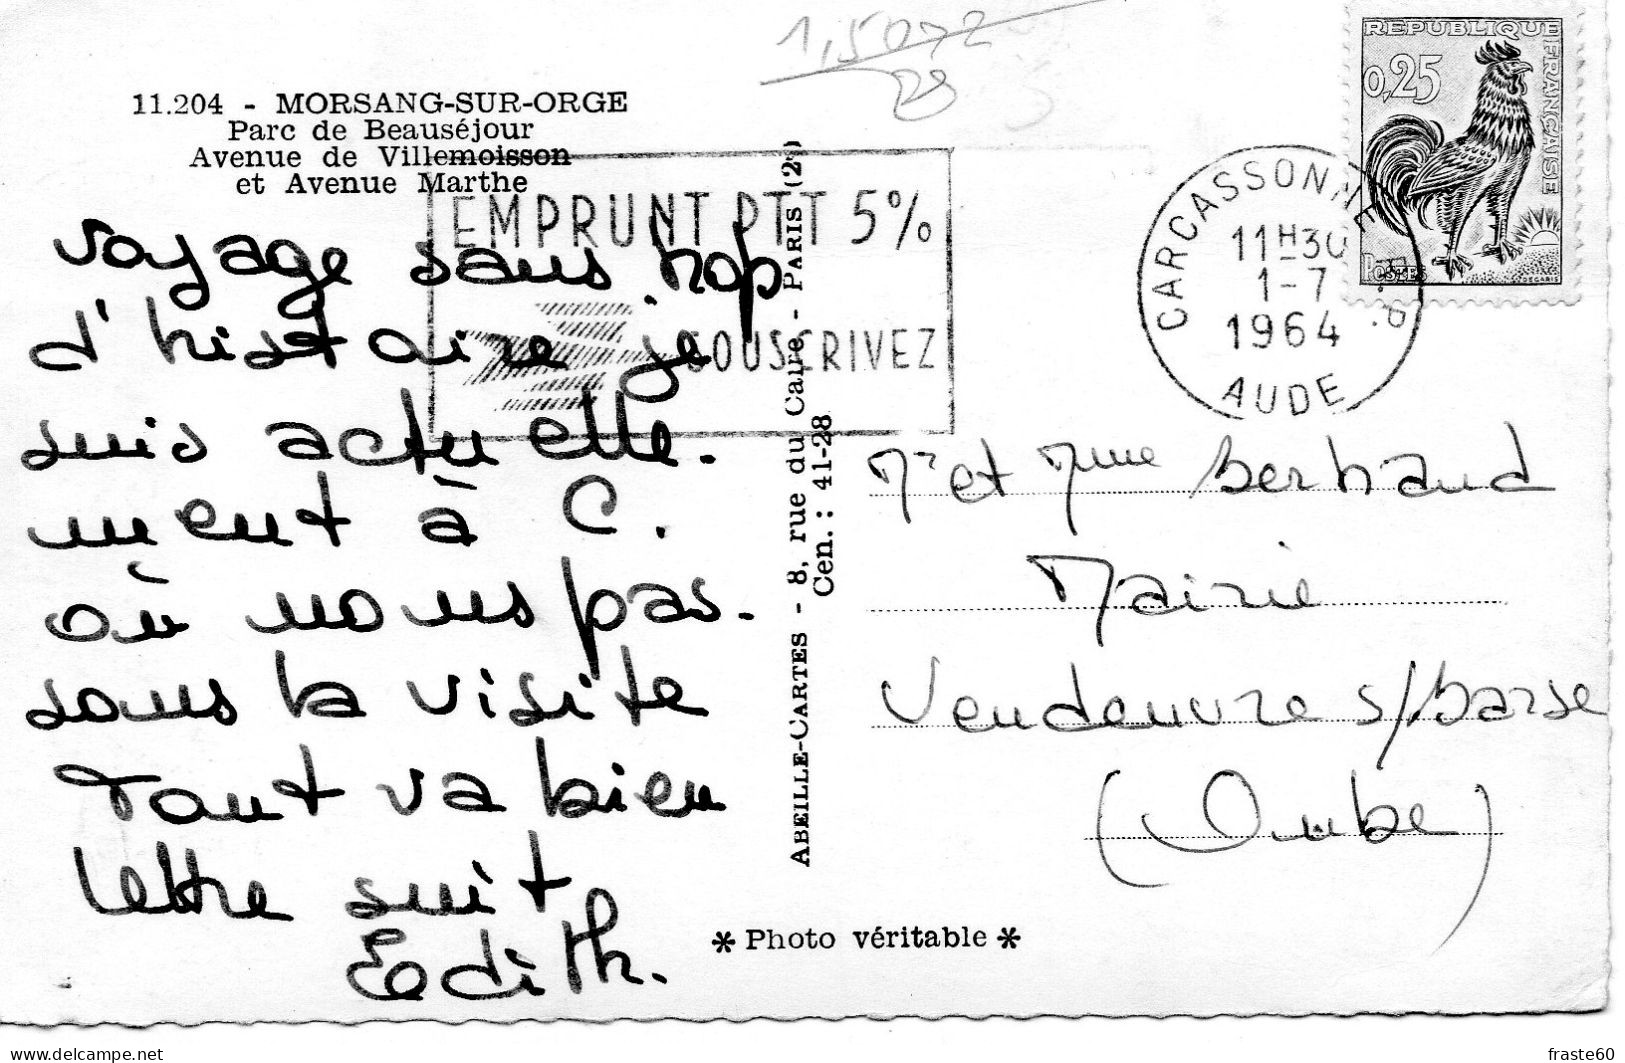 1,5072
11.204 - MORSANG-SUR-ORGE
Parc de Beauséjour
Avenue de Villemoisson
et Avenue Marthe
voyage sans trop
d'histoire je
suis actuelle.
ment à C.
où nous pas.
sons la visite
Tout va bien
lettre suit
Edith.
EMPRUNT PTT 5%
SOUSCRIVEZ
ABEILLE-CARTES - 8, rue du Caire - PARIS (2e)
Cen. : 41-28
CARCASSONNE R.P.
11H30
1-7
1964
AUDE
REPUBLIQUE
FRANÇAISE
0,25
POSTES
DECARIS
Mr et Mme Bernand
Mairie
Vendeuvre s/Barse
(Aube)
* Photo véritable *
www.delcampe.net
fraste60